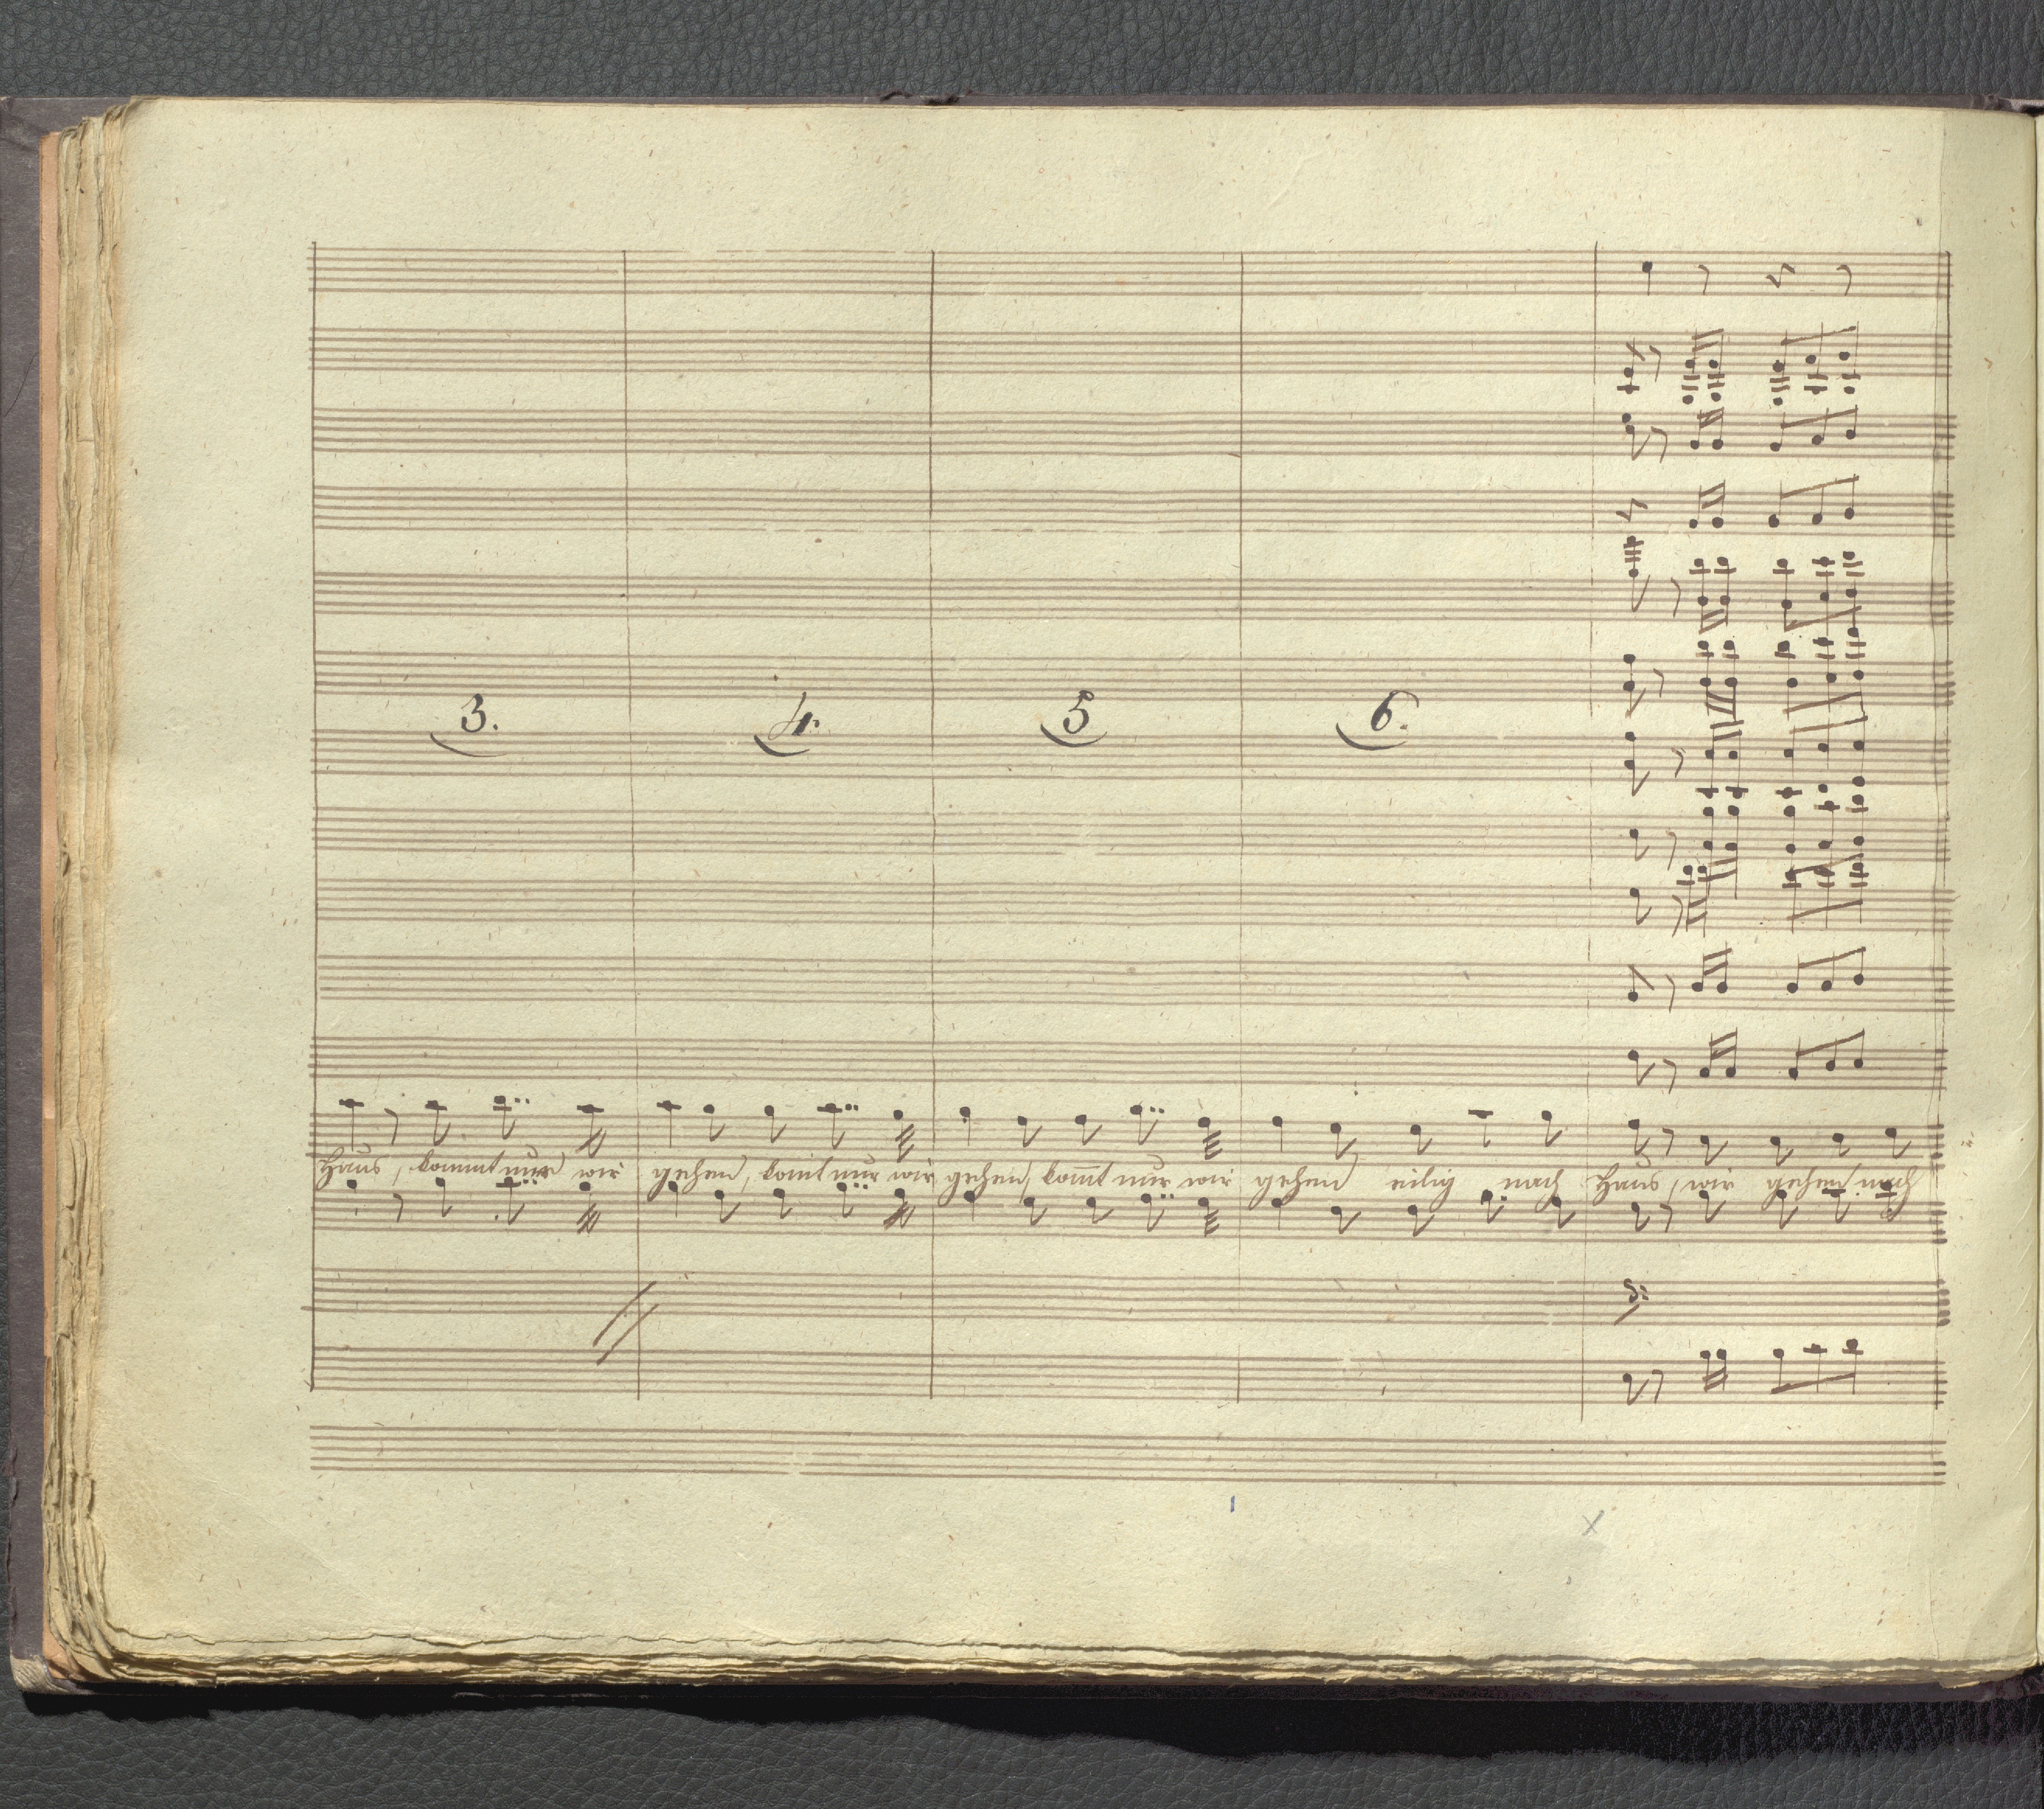 3. 4. 5 6.
Haus, kommt nur wir gehen, komt nur wir gehen, kom̅t nur wir gehen eilig nach Haus, wir gehen nach